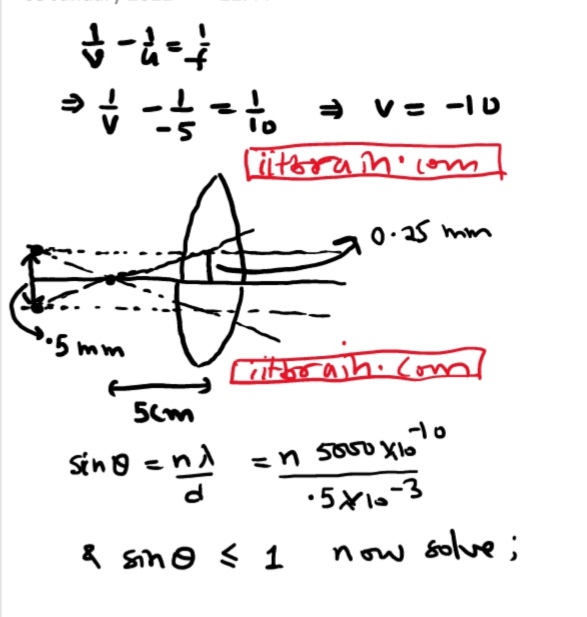 1/v - 1/u = 1/f
⇒ 1/v - 1/-5 = 1/10 ⇒ v = -10
iitbrain.com
0.25 mm
.5 mm
iitbrain.com
5cm
sinθ = nλ/d = n 5000×10^-10/.5×10^-3
& sinθ ≤ 1 now solve;